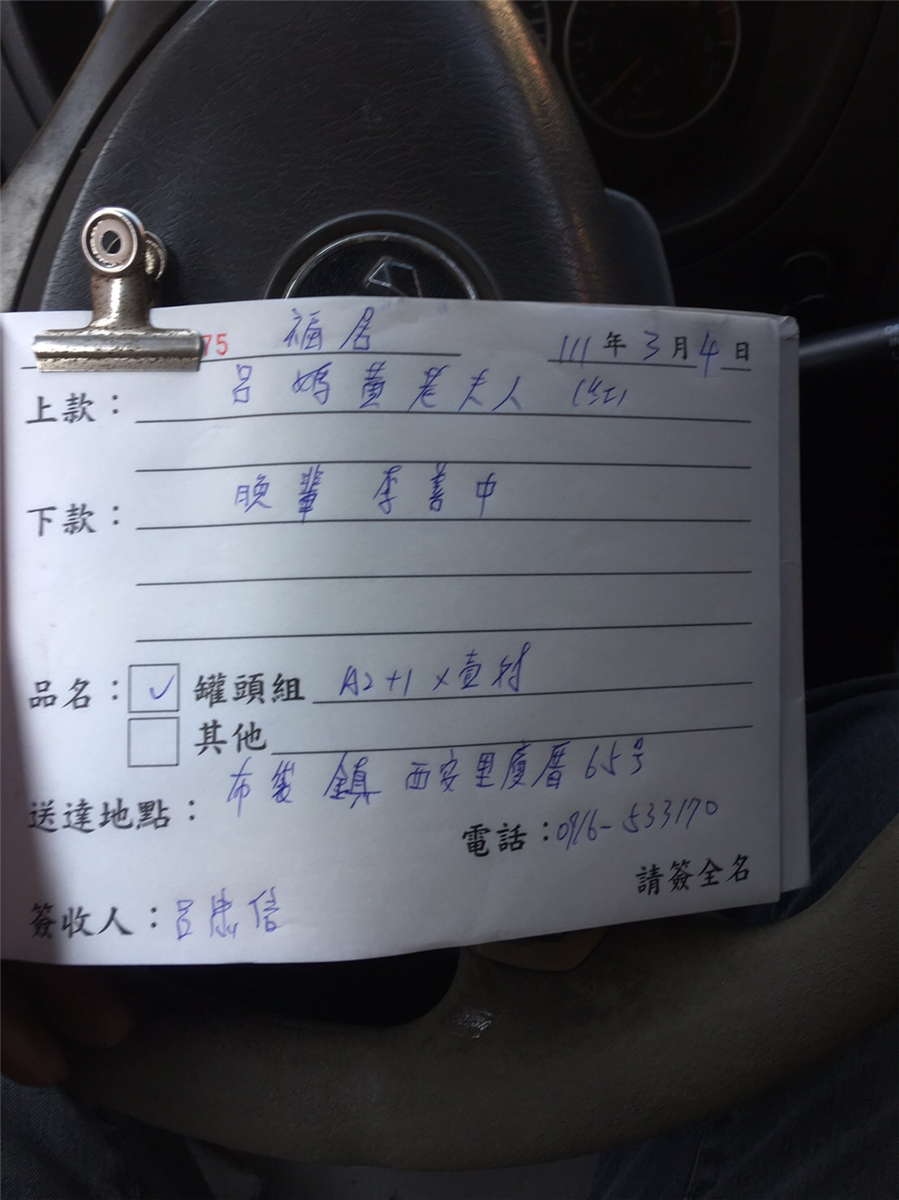 75 福居 111年3月4日
上款： 呂媽黃老夫人 (紅)
下款： 晚輩 李善中
品名： ✓ 罐頭組 A2+1×壹对
其他
送達地點： 布袋鎮西安里廈厝65号
電話：0916-533170
請簽全名
簽收人：呂忠信